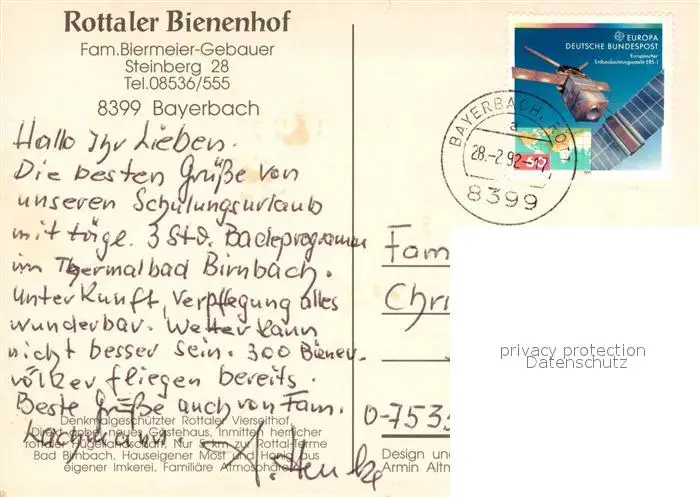 Rottaler Bienenhof
Fam.Biermeier-Gebauer
Steinberg 28
Tel.08536/555
8399 Bayerbach
EUROPA
DEUTSCHE BUNDESPOST
Europäischer
Erdbeobachtungssatellit ERS-1
BAYERBACH,
a
28.-2.92-17
8399
Hallo Ihr Lieben.
Die besten Grüße von
unseren Schulungsurlaub
mit tägl. 3 Std. Badeprogramm
im Thermalbad Birnbach.
Unterkunft, Verpflegung alles
wunderbar. Wetter kann
nicht besser sein. 300 Bienen-
völker fliegen bereits.
Beste Grüße auch von Fam.
Fam
Chri
privacy protection
Datenschutz
0-7535
Denkmalgeschützter Rottaler Vierseithof,
Direkt dabei neues Gästehaus, Inmitten herrlicher
rottaler Hügellandschaft, Nur 5 km zur Rottal-Terme
Bad Birnbach, Hauseigener Most und Honig aus
eigener Imkerei, Familiäre Atmosphäre
Design un
Armin Altm